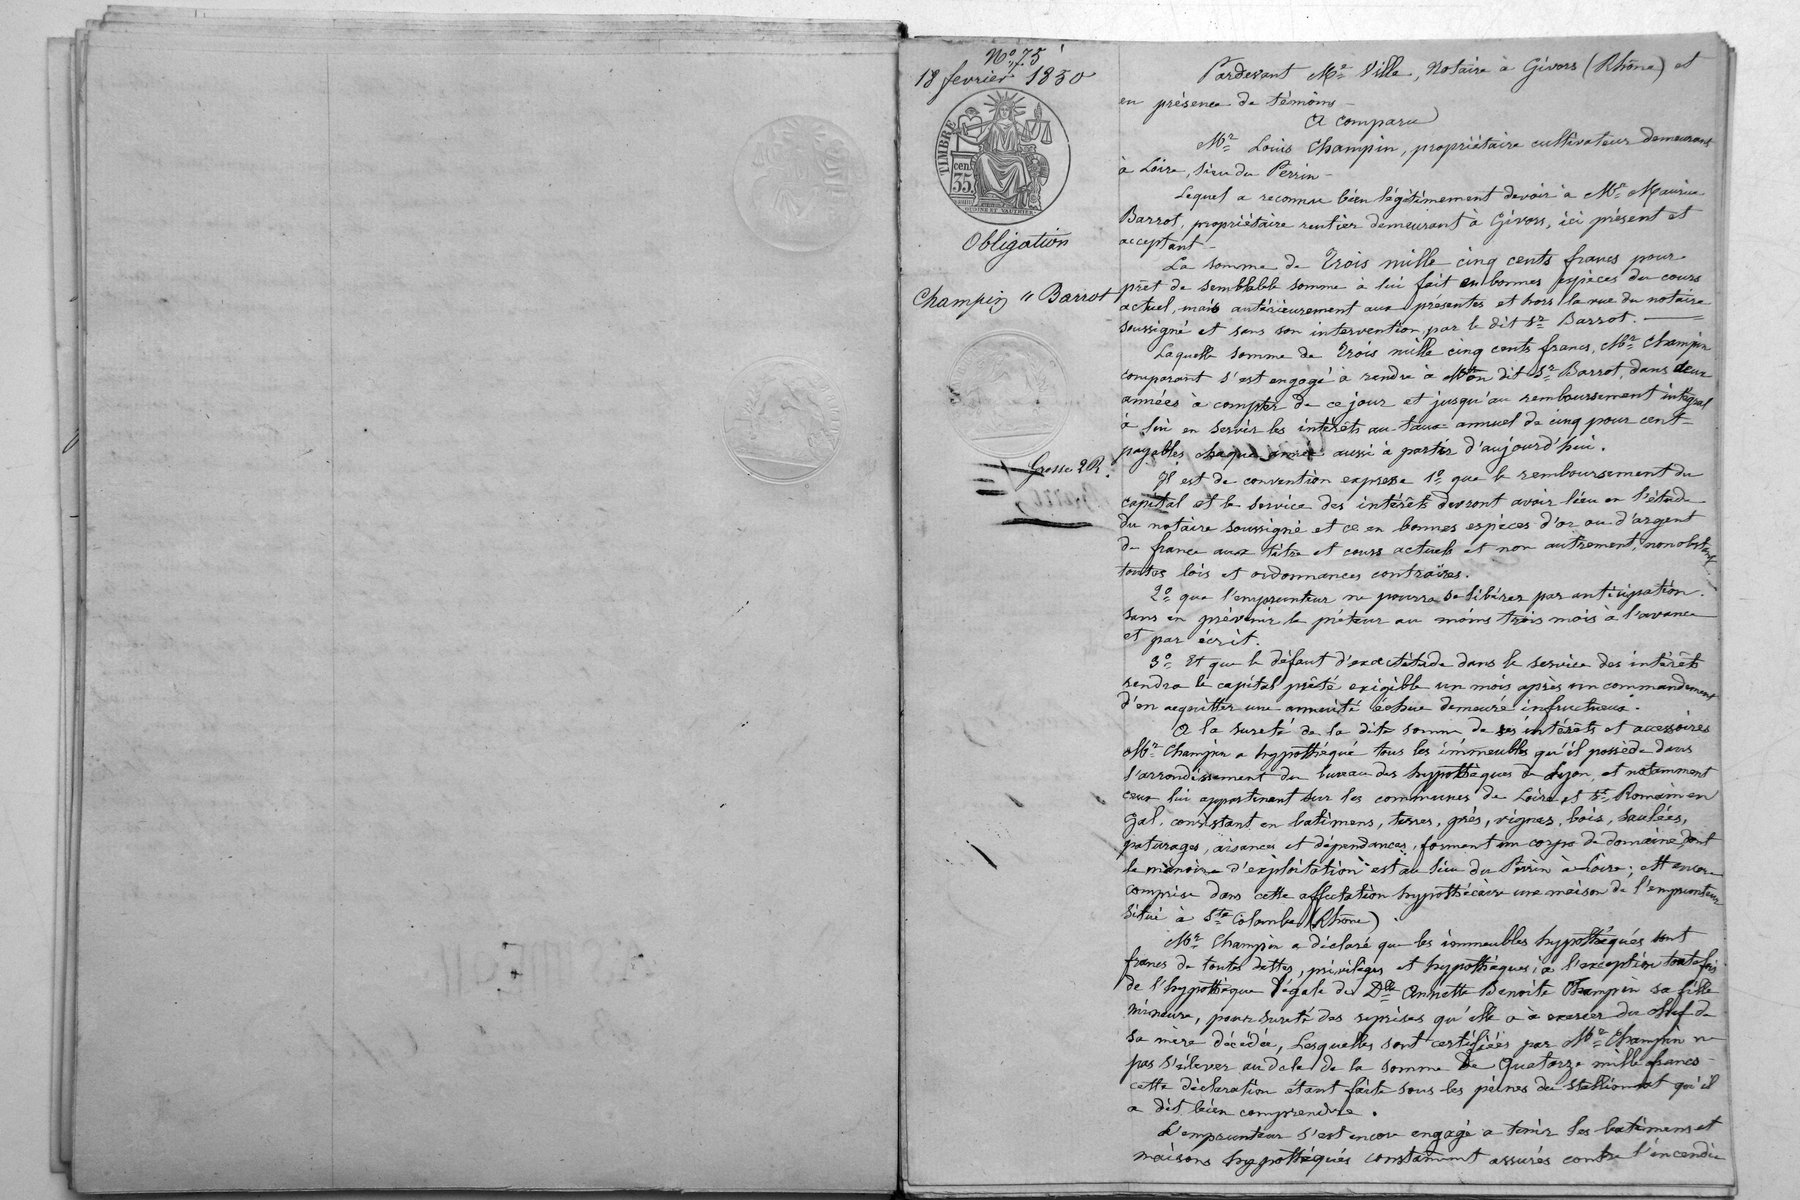 No 75
18 fevrier 1850
TIMBRE
35 cen.
Obligation
Champin " Barrot
Grosse 2 R.
Pardevant Me Ville, Notaire à Givors (Rhône) et
en présence de témoins –
A comparu
Mr Louis Champin, propriétaire cultivateur demeurant
à Loire, lieu du Perrin –
Lequel a reconnu bien légitimement devoir à Mr Maurice
Barrot, propriétaire rentier demeurant à Givors, ici présent et
acceptant –
La somme de Trois mille cinq cents francs pour
prêt de semblable somme à lui fait en bonnes espèces du cours
actuel, mais antérieurement aux présentes et hors la vue du notaire
soussigné et sans son intervention, par le dit Sr Barrot. –
Laquelle somme de Trois mille cinq cents francs, Mr Champin
comparant s'est engagé à rendre à mon dit Sr Barrot, dans deux
années à compter de ce jour et jusqu'au remboursement intégral
à lui en servir les intérêts au taux annuel de cinq pour cent –
payables chaque année aussi à partir d'aujourd'hui.
Il est de convention expresse 1o que le remboursement du
capital et le service des intérêts devront avoir lieu en l'étude
du notaire soussigné et ce en bonnes espèces d'or ou d'argent
de france aux titre et cours actuels et non autrement, nonobstant
toutes lois et ordonnances contraires.
2o que l'emprunteur ne pourra se libérer par anticipation
sans en prévenir le prêteur au moins trois mois à l'avance
et par écrit.
3o Et que le défaut d'exactitude dans le service des intérêts
rendra le capital prêté exigible un mois après un commandement
d'en acquitter une annuité échue demeuré infructueux.
A la sureté de la dite somme de ses intérêts et accessoires
Mr Champin a hypothéqué tous les immeubles qu'il possède dans
l'arrondissement du bureau des hypothèques de Lyon, et notamment
ceux lui appartenant sur les communes de Loire et St Romain en
gal, consistant en batimens, terres, prés, vignes, bois, saulées,
paturages, aisances et dépendances, formant un corps de domaine dont
le manoire d'exploitation est au lieu du Perrin à Loire; est encore
comprise dans cette affectation hypothécaire une maison de l'emprunteur
située à Ste Colombe (Rhône)
Mr Champin a déclaré que les immeubles hypothéqués sont
francs de toutes dettes, privilèges et hypothèques, à l'exception toutefois
de l'hypothèque légale de Dlle Annette Benoite Champin sa fille
mineure, pour sureté des reprises qu'elle a à exercer du chef de
sa mère décédée, Lesquelles sont certifiées par Mr Champin ne
pas s'élever au dela de la somme de Quatorze mille francs –
cette déclaration étant faite sous les peines du stellionat qu'il
a dit bien comprendre.
L'emprunteur s'est encore engagé a tenir les batimens et
maisons hypothéqués constamment assurés contre l'incendie